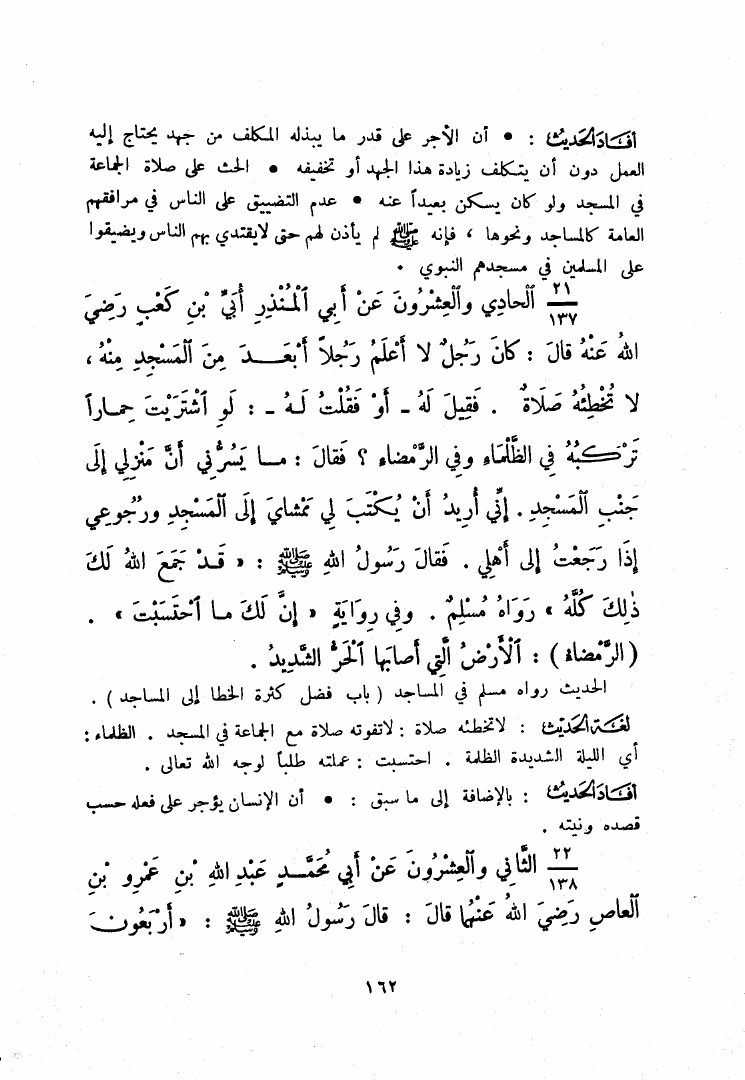 أفاد الحديث : • أن الأجر على قدر ما يبذله المكلف من جهد يحتاج إليه
العمل دون أن يتكلف زيادة هذا الجهد أو تخفيفه • الحث على صلاة الجماعة
في المسجد ولو كان يسكن بعيداً عنه • عدم التضييق على الناس في مرافقهم
العامة كالمساجد ونحوها ، فإنه ﷺ لم يأذن لهم حتى لايقتدي بهم الناس ويضيقوا
على المسلمين في مسجدهم النبوي .
٢١/١٣٧ اَلْحادِي والْعِشْرُونَ عَنْ أَبي الْمُنْذِرِ أُبَيِّ بْنِ كَعْبٍ رَضِيَ
اللهُ عَنْهُ قالَ : كانَ رَجُلٌ لا أَعْلَمُ رَجُلاً أَبْعَــدَ مِنَ الْمَسْجِدِ مِنْهُ ،
لا تُخْطِئُهُ صَلَاةٌ . فَقِيلَ لَهُ - أَوْ فَقُلْتُ لَـهُ - : لَوِ اشْتَرَيْتَ حِمـاراً
تَرْكَبُهُ فِي الظَّلْمَاءِ وفي الرَّمْضاءِ ؟ فَقالَ : مـا يَسُرُّنِي أَنَّ مَنْزِلِي إِلَى
جَنْبِ الْمَسْجِدِ . إِنِّي أُرِيدُ أَنْ يُكْتَبَ لِي مَمْشايَ إِلَى الْمَسْجِدِ ورُجُوعِي
إِذَا رَجَعْتُ إِلى أَهْلِي . فَقالَ رَسُولُ اللهِ ﷺ : « قَـدْ جَمَعَ اللهُ لَكَ
ذٰلِكَ كُلَّهُ » رَوَاهُ مُسْلِمٌ . وفِي رِوَايَةٍ « إِنَّ لَكَ مـا احْتَسَبْتَ » .
( الرَّمْضاءُ ) : اَلْأَرْضُ الَّتِي أَصابَها الْحَرُّ الشَّدِيدُ .
الحديث رواه مسلم في المساجد ( باب فضل كثرة الخطا إلى المساجد ) .
لغة الحديث : لاتخطئه صلاة : لاتفوته صلاة مع الجماعة في المسجد . الظلماء :
أي الليلة الشديدة الظلمة . احتسبت : عملته طلباً لوجه الله تعالى .
أفاد الحديث : بالإضافة إلى ما سبق : • أن الإنسان يؤجر على فعله حسب
قصده ونيته .
٢٢/١٣٨ الثَّانِي والْعِشْرُونَ عَنْ أَبِي مُحَمَّـدٍ عَبْدِ اللهِ بْنِ عَمْرِو بْنِ
الْعاصِ رَضِيَ اللهُ عَنْهُما قالَ : قالَ رَسُولُ اللهِ ﷺ : « أَرْبَعُونَ
١٦٢